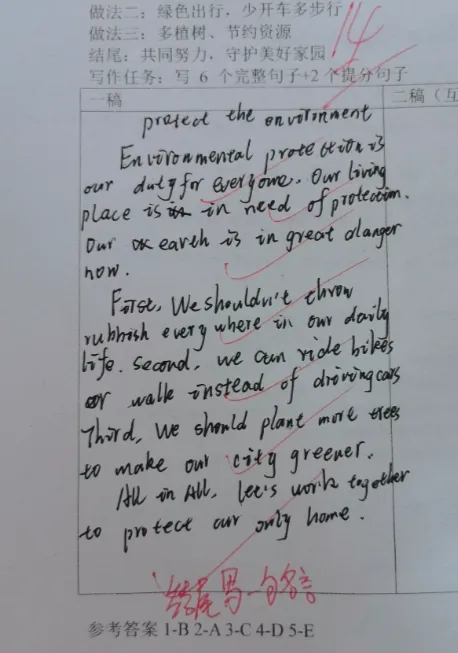 做法二：绿色出行，少开车多步行
做法三：多植树、节约资源
结尾：共同努力，守护美好家园
写作任务：写 6 个完整句子+2 个提分句子
14
一稿
二稿（互
protect the environment
Environmental protection is
our duty for everyone. Our living
place is in need of protection.
Our earth is in great danger
now.
First, We shouldn't throw
rubbish everywhere in our daily
life. Second, we can ride bikes
or walk instead of driving cars
Third, We should plant more trees
to make our city greener.
All in All, let's work together
to protect our only home.
结尾写一句名言
参考答案 1-B 2-A 3-C 4-D 5-E